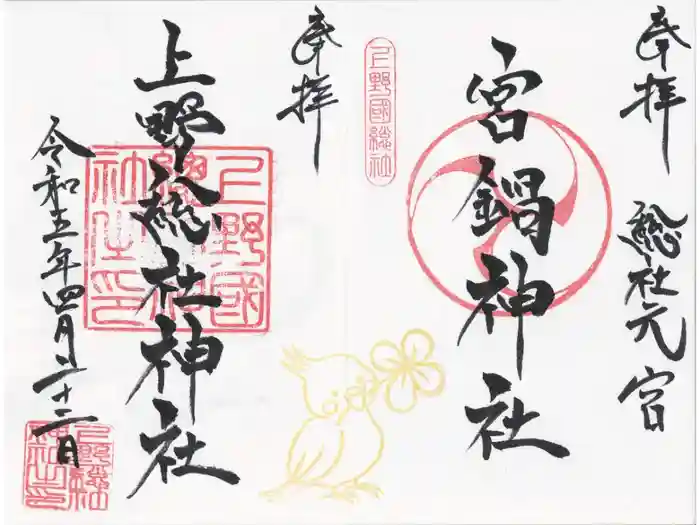 奉拝
総社元宮
宮鍋神社
上野國総社
奉拝
上野総社神社
上野國
総社神
社之印
令和五年四月二十二日
上野総社
神社之印